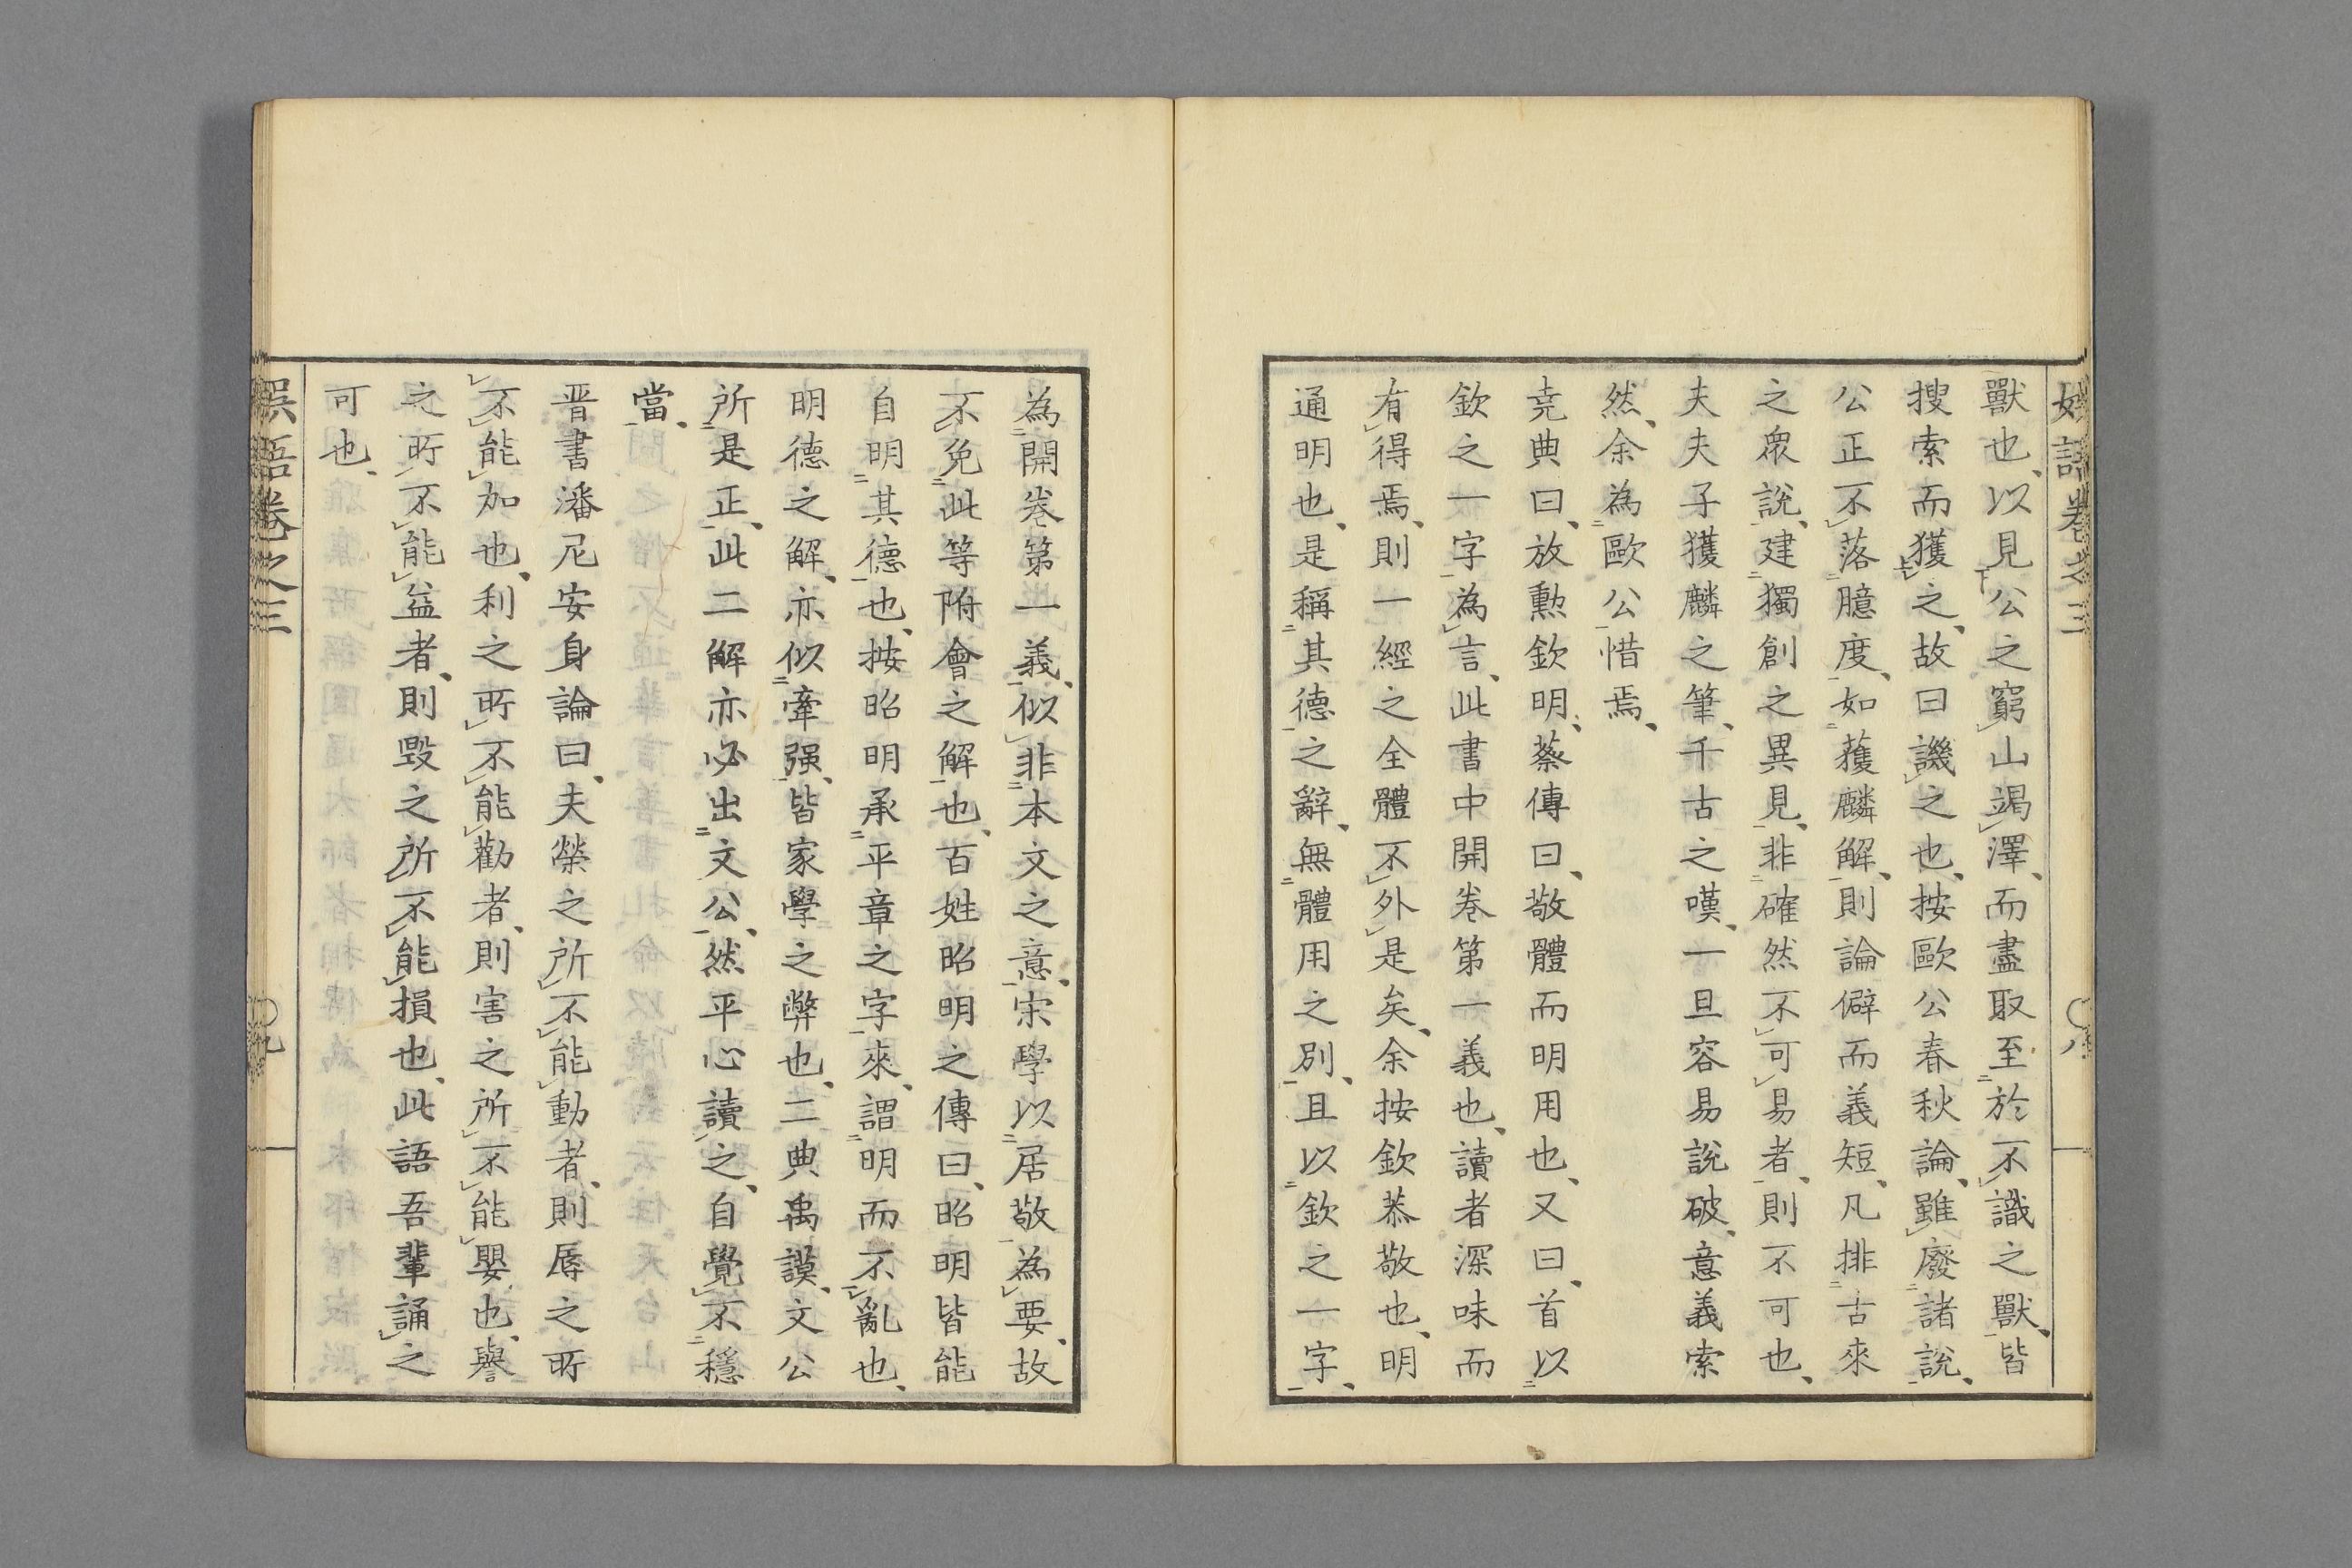 獸也、以見公之窮山竭澤、而盡取至於不識之獸、皆
搜索而獲之、故曰譏之也、按歐公春秋論、雖廢諸說、
公正不落臆度、如獲麟解、則論僻而義短、凡排古來
之眾說、建獨創之異見、非確然不可易者、則不可也、
夫夫子獲麟之筆、千古之嘆、一旦容易說破、意義索
然、余為歐公惜焉、
堯典曰、放勲欽明、蔡傳曰、敬體而明用也、又曰、首以
欽之一字為言、此書中開卷第一義也、讀者深味而
有得焉、則一經之全體不外是矣、余按欽恭敬也、明
通明也、是稱其德之辭、無體用之別、且以欽之一字、
為開卷第一義、似非本文之意、宋學以居敬為要、故
不免此等附會之解也、百姓昭明之傳曰、昭明皆能
自明其德也、按昭明承平章之字來、謂明而不亂也、
明德之解、亦似牽强、皆家學之弊也、二典禹謨、文公
所是正、此二解亦必出文公、然平心讀之、自覺不穩
當、
晋書潘尼安身論曰、夫榮之所不能動者、則辱之所
不能加也、利之所不能勸者、則害之所不能嬰也、譽
之所不能益者、則毀之所不能損也、此語吾輩誦之
可也、
卷之三
九